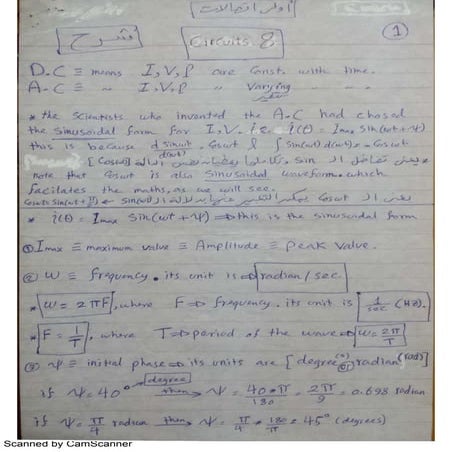 أولى اتصالات
شرح
Circuits 8
1
D.C ≡ means I,V,P are const. with time.
A.C ≡ " I,V,P " Varying " "
متغير
* the scientists who invented the A.C had chosed
the sinusoidal form for I,V. i.e. i(t) = Imax sin(wt+ψ)
this is because d sinwt / d(wt) = coswt & ∫ sin(wt) d(wt) = - coswt
[coswt]
note that coswt is also sinusoidal waveform. which
facilates the maths, as we will see.
* i(t) = Imax sin(wt+ψ) ⇒ this is the sinusoidal form
① Imax ≡ maximum value ≡ Amplitude ≡ peak value.
② w ≡ frequency. its unit is ⇒ radian/sec
* w = 2πF, where F ⇒ frequency. its unit is 1/sec (Hz).
* F = 1/T, where T ⇒ period of the wave ⇒ w = 2π/T
③ ψ ≡ initial phase ⇒ its units are [degree(°) or radian (rad)]
if ψ = 40° degree then ψ = 40*π/180 = 2π/9 = 0.698 radian
if ψ = π/4 radian then ψ = π/4 * 180/π = 45° (degrees)
Scanned by CamScanner